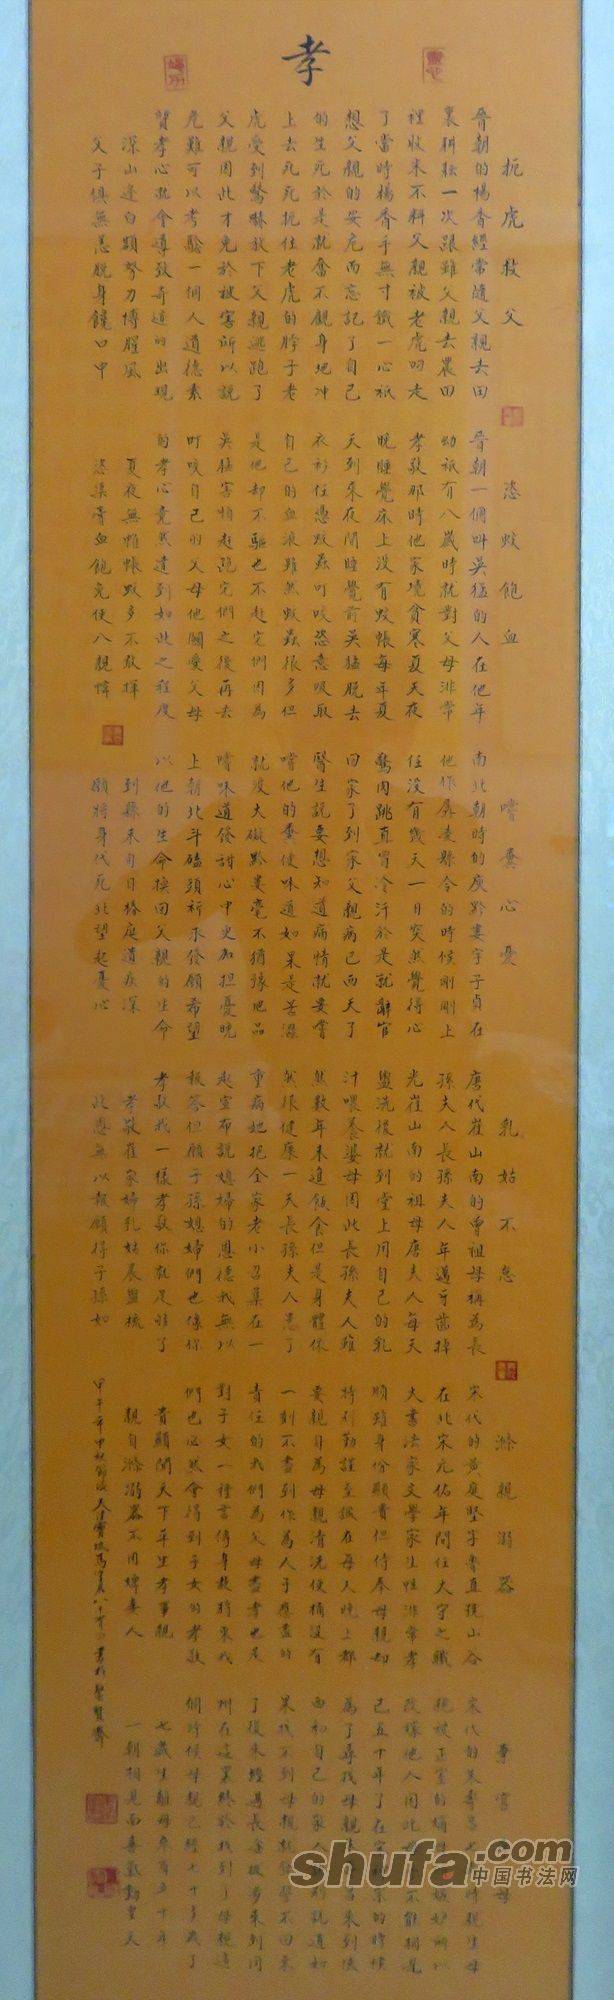 孝
扼虎救父
晉朝的楊香經常隨父親去田
裏耕耘一次跟雖父親去農田
裡收禾不料父親被老虎叼走
了當時楊香手無寸鐵一心祇
想父親的安危而忘記了自己
的生死於是就奮不顧身地冲
上去死死扼住老虎的脖子老
虎受到驚嚇放下父親逃跑了
父親因此才免於被害所以説
危難可以考驗一個人道德素
質孝心就會導致奇迹的出現
深山逢白額努力搏腥風
父子俱無恙脱身饞口中
恣蚊飽血
晉朝一個叫吳猛的人在他年
幼祇有八歲時就對父母非常
孝敬那時他家境貧寒夏天夜
晚睡覺床上没有蚊帳每年夏
天到來夜間睡覺前吳猛脱去
衣衫任憑蚊蟲叮咬恣意吸取
自己的血液雖然蚊蟲很多但
是他却不驅也不赶它們因為
吳猛害怕赶跑它們之後再去
叮咬自己的父母他關愛父母
的孝心竟然達到如此之程度
夏夜無帷帳蚊多不敢揮
恣渠膏血飽免使入親幃
嚐糞心憂
南北朝時的庾黔婁字子貞在
他作孱陵縣令的時候剛剛上
任没有幾天一日突然覺得心
驚肉跳直冒冷汗於是就辭官
回家了到家父親病已兩天了
醫生説要想知道病情就要嚐
嚐他的糞便味道如果是苦澀
就没大礙黔婁毫不猶豫地品
嚐味道發甜心中更加担憂晚
上朝北斗磕頭祈求發願希望
以他的生命换回父親的生命
到縣未旬日椿庭遺疾深
願將身代死北望起憂心
乳姑不怠
唐代崔山南的曾祖母稱為長
孫夫人長孫夫人年邁牙齒掉
光崔山南的祖母唐夫人每天
盥洗後就到堂上用自己的乳
汁喂養婆母因此長孫夫人雖
然數年未進飯食但是身體依
然很健康一天長孫夫人患了
重病她把全家老小召集在一
起宣布説媳婦的恩德我無以
報答但願子孫媳婦們也像你
孝敬我一樣孝敬你就足够了
孝敬崔家婦乳姑晨盥梳
此恩無以報願得子孫如
滌親溺器
宋代的黄庭堅字魯直號山谷
在北宋元佑年間任太守之職
大書法家文學家生性非常孝
順雖身份顯貴但侍奉母親却
特别勤謹至誠在每天晚上都
要親自為母親清洗便桶没有
一刻不盡到作為人子應盡的
責任的我們為父母盡孝也是
對子女一種言傳身教將來我
們也必然會得到子女的孝敬
貴顯聞天下平生孝事親
親自滌溺器不用婢妾人
宋代的朱壽昌七歲時親生母
親被正室的
改嫁他人因此
己五十年了在宋
為了尋找母親
面和自己的家人
果找不到母親就發誓不回來
了後來經過長
州在這里終於找到了母親這
個時候母親已經七十多歲了
七歲生離母參商五十年
一朝相見面喜氣動皇天
shufa.com
中国书法网